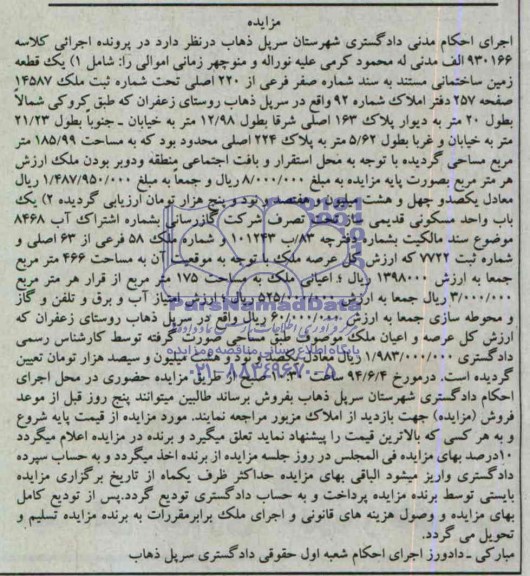 مزایده
اجرای احکام مدنی دادگستری شهرستان سرپل ذهاب درنظر دارد در پرونده اجرائی کلاسه
۹۳۰۱۶۶ الف مدنی له محمود کرمی علیه نوراله و منوچهر زمانی اموالی را: شامل ۱) یک قطعه
زمین ساختمانی مستند به سند شماره صفر فرعی از ۲۲۰ اصلی تحت شماره ثبت ملک ۱۴۵۸۷
صفحه ۲۵۷ دفتر املاک شماره ۹۲ واقع در سرپل ذهاب روستای زعفران که طبق کروکی شمالا
بطول ۲۰ متر به دیوار پلاک ۱۶۳ اصلی شرقا بطول ۱۲/۹۸ متر به خیابان ـ جنوبا بطول ۲۱/۲۳
متر به خیابان و غربا بطول ۵/۶۲ متر به پلاک ۲۲۴ اصلی محدود بود که به مساحت ۱۸۵/۹۹ متر
مربع مساحی گردیده با توجه به محل استقرار و بافت اجتماعی منطقه ودوبر بودن ملک ارزش
هر متر مربع بصورت پایه مزایده به مبلغ ۸/۰۰۰/۰۰۰ ریال و جمعاً به مبلغ ۱/۴۸۷/۹۵۰/۰۰۰ ریال
معادل یکصدو چهل و هشت میلیون و هفتصد و نود و پنج هزار تومان ارزیابی گردیده ۲) یک
باب واحد مسکونی قدیمی ساز تحت تصرف شرکت گازرسانی بشماره اشتراک آب ۸۴۶۸
موضوع سند مالکیت بشماره دفترچه ۸۳/ب ۱۰۱۲۴۳ و شماره ملک ۵۸ فرعی از ۶۳ اصلی و
شماره ثبت ۷۷۲۲ که ارزش کل عرصه ملک با توجه به موقعیت آن به مساحت ۴۶۶ متر مربع
جمعا به ارزش ۱۳۹۸۰۰۰ ریال ؛ اعیانی ملک به مساحت ۱۷۵ متر مربع از قرار هر متر مربع
۳/۰۰۰/۰۰۰ ریال جمعا به ارزش ۵۲۵/۰۰۰/۰۰۰ ریال ؛ ارزش امتیاز آب و برق و تلفن و گاز
و محوطه سازی جمعا به ارزش ۶۰/۰۰۰/۰۰۰ ریال واقع در سرپل ذهاب روستای زعفران که
ارزش کل عرصه و اعیان ملک موصوف طبق مساحی صورت گرفته توسط کارشناس رسمی
دادگستری ۱/۹۸۳/۰۰۰/۰۰۰ ریال معادل یکصد و نود و هشت میلیون و سیصد هزار تومان تعیین
گردیده است. درمورخ ۹۴/۶/۴ ساعت ۱۰/۳۰ صبح از طریق مزایده حضوری در محل اجرای
احکام دادگستری شهرستان سرپل ذهاب بفروش برساند طالبین میتوانند پنج روز قبل از موعد
فروش (مزایده) جهت بازدید از املاک مزبور مراجعه نمایند. مورد مزایده از قیمت پایه شروع
و به هر کسی که بالاترین قیمت را پیشنهاد نماید تعلق میگیرد و برنده در مزایده اعلام میگردد
۱۰درصد بهای مزایده فی المجلس در روز جلسه مزایده از برنده اخذ میگردد و به حساب سپرده
دادگستری واریز میشود الباقی بهای مزایده حداکثر ظرف یکماه از تاریخ برگزاری مزایده
بایستی توسط برنده مزایده پرداخت و به حساب دادگستری تودیع گردد.پس از تودیع کامل
بهای مزایده و وصول هزینه های قانونی و اجرای ملک برابرمقررات به برنده مزایده تسلیم و
تحویل می گردد.
مبارکی ـ دادورز اجرای احکام شعبه اول حقوقی دادگستری سرپل ذهاب
ParsNamadData
پایگاه اطلاع رسانی مناقصه و مزایده
۰۲۱-۸۸۳۴۹۶۷۰-۵